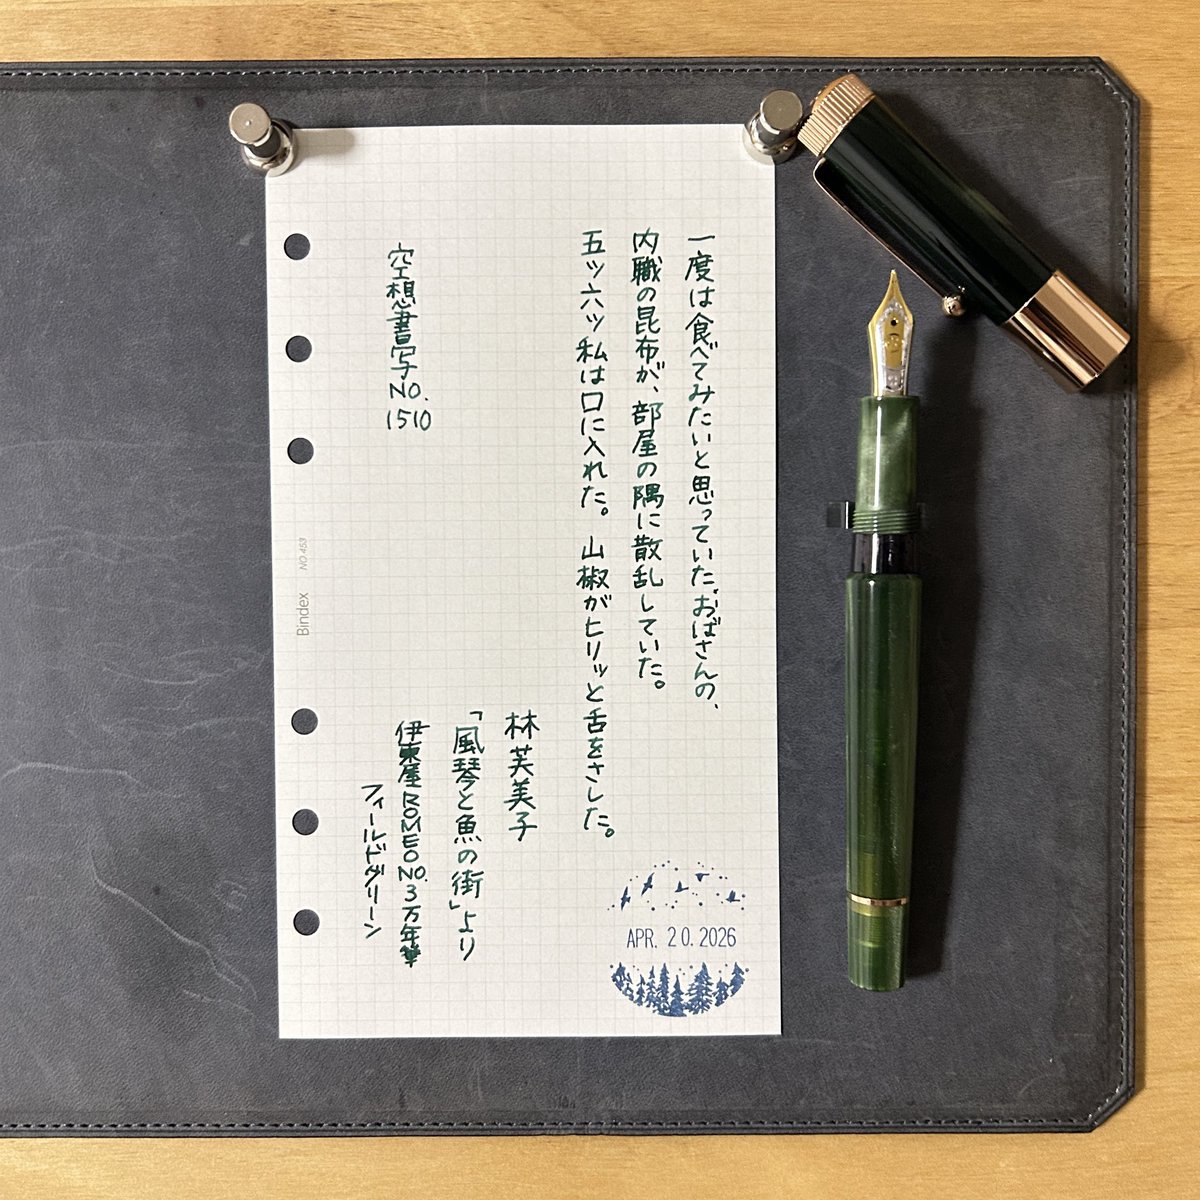 一度は食べてみたいと思っていた、おばさんの、
内職の昆布が、部屋の隅に散乱していた。
五ツ六ツ私は口に入れた。山椒がヒリッと舌をさした。
林芙美子
「風琴と魚の街」より
伊東屋ROMEO NO.3万年筆
フィールドグリーン
空想書写
NO.
1510
APR. 20. 2026
Bindex NO 453